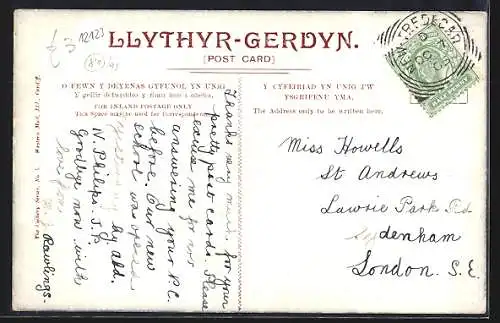 £3
12123
LLYTHYR-GERDYN.
[POST CARD]
NEW TREDEGAR
OC
05
O FEWN Y DEYRNAS GYFUNOL YN UNIG
Y gellir defnyddio y rhan hon i ohebu,
FOR INLAND POSTAGE ONLY
This Space may be used for Correspondence.
Y CYFEIRIAD YN UNIG I'W
YSGRIFENU YMA.
The Address only to be written here.
Western Mail, Ltd., Cardiff
Thanks very much for your
pretty post cards. Please
excuse me for not
answering your P.C.
before. Our new
school was opened
yesterday by ald.
N. Philips. J.P.
Goodbye now with
love from
Rawlings.
Miss Howells
St Andrews
Lawrie Park Rd
Sydenham
London. S.E.